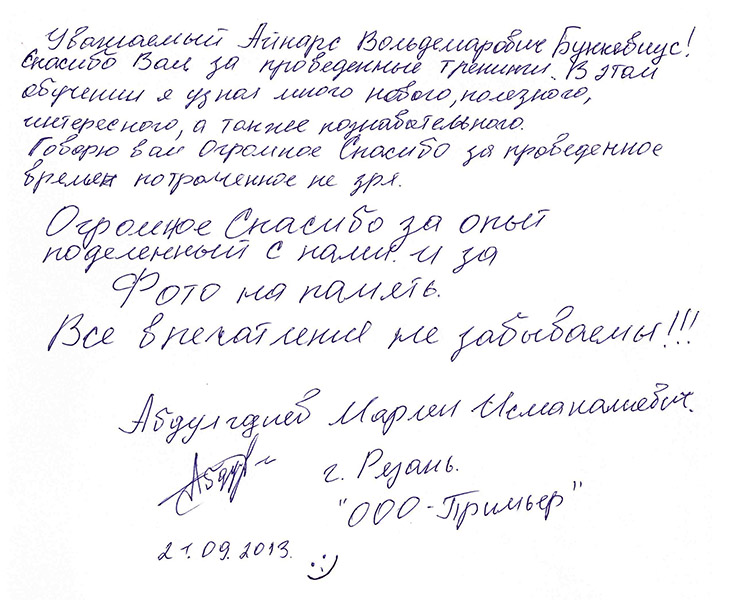 Уважаемый Айнарс Вольдемарович Бункевиус!
Спасибо Вам за проведенные тренинги. В этом
обучении я узнал много нового, полезного,
интересного, а также познавательного.
Говорю вам Огромное Спасибо за проведенное
время потраченное не зря.
Огромное Спасибо за опыт
поделенный с нами. и за
Фото на память.
Все впечатления не забываемы!!!
Марлен
г. Рязань.
"ООО-Примьер"
21.09.2013. :)